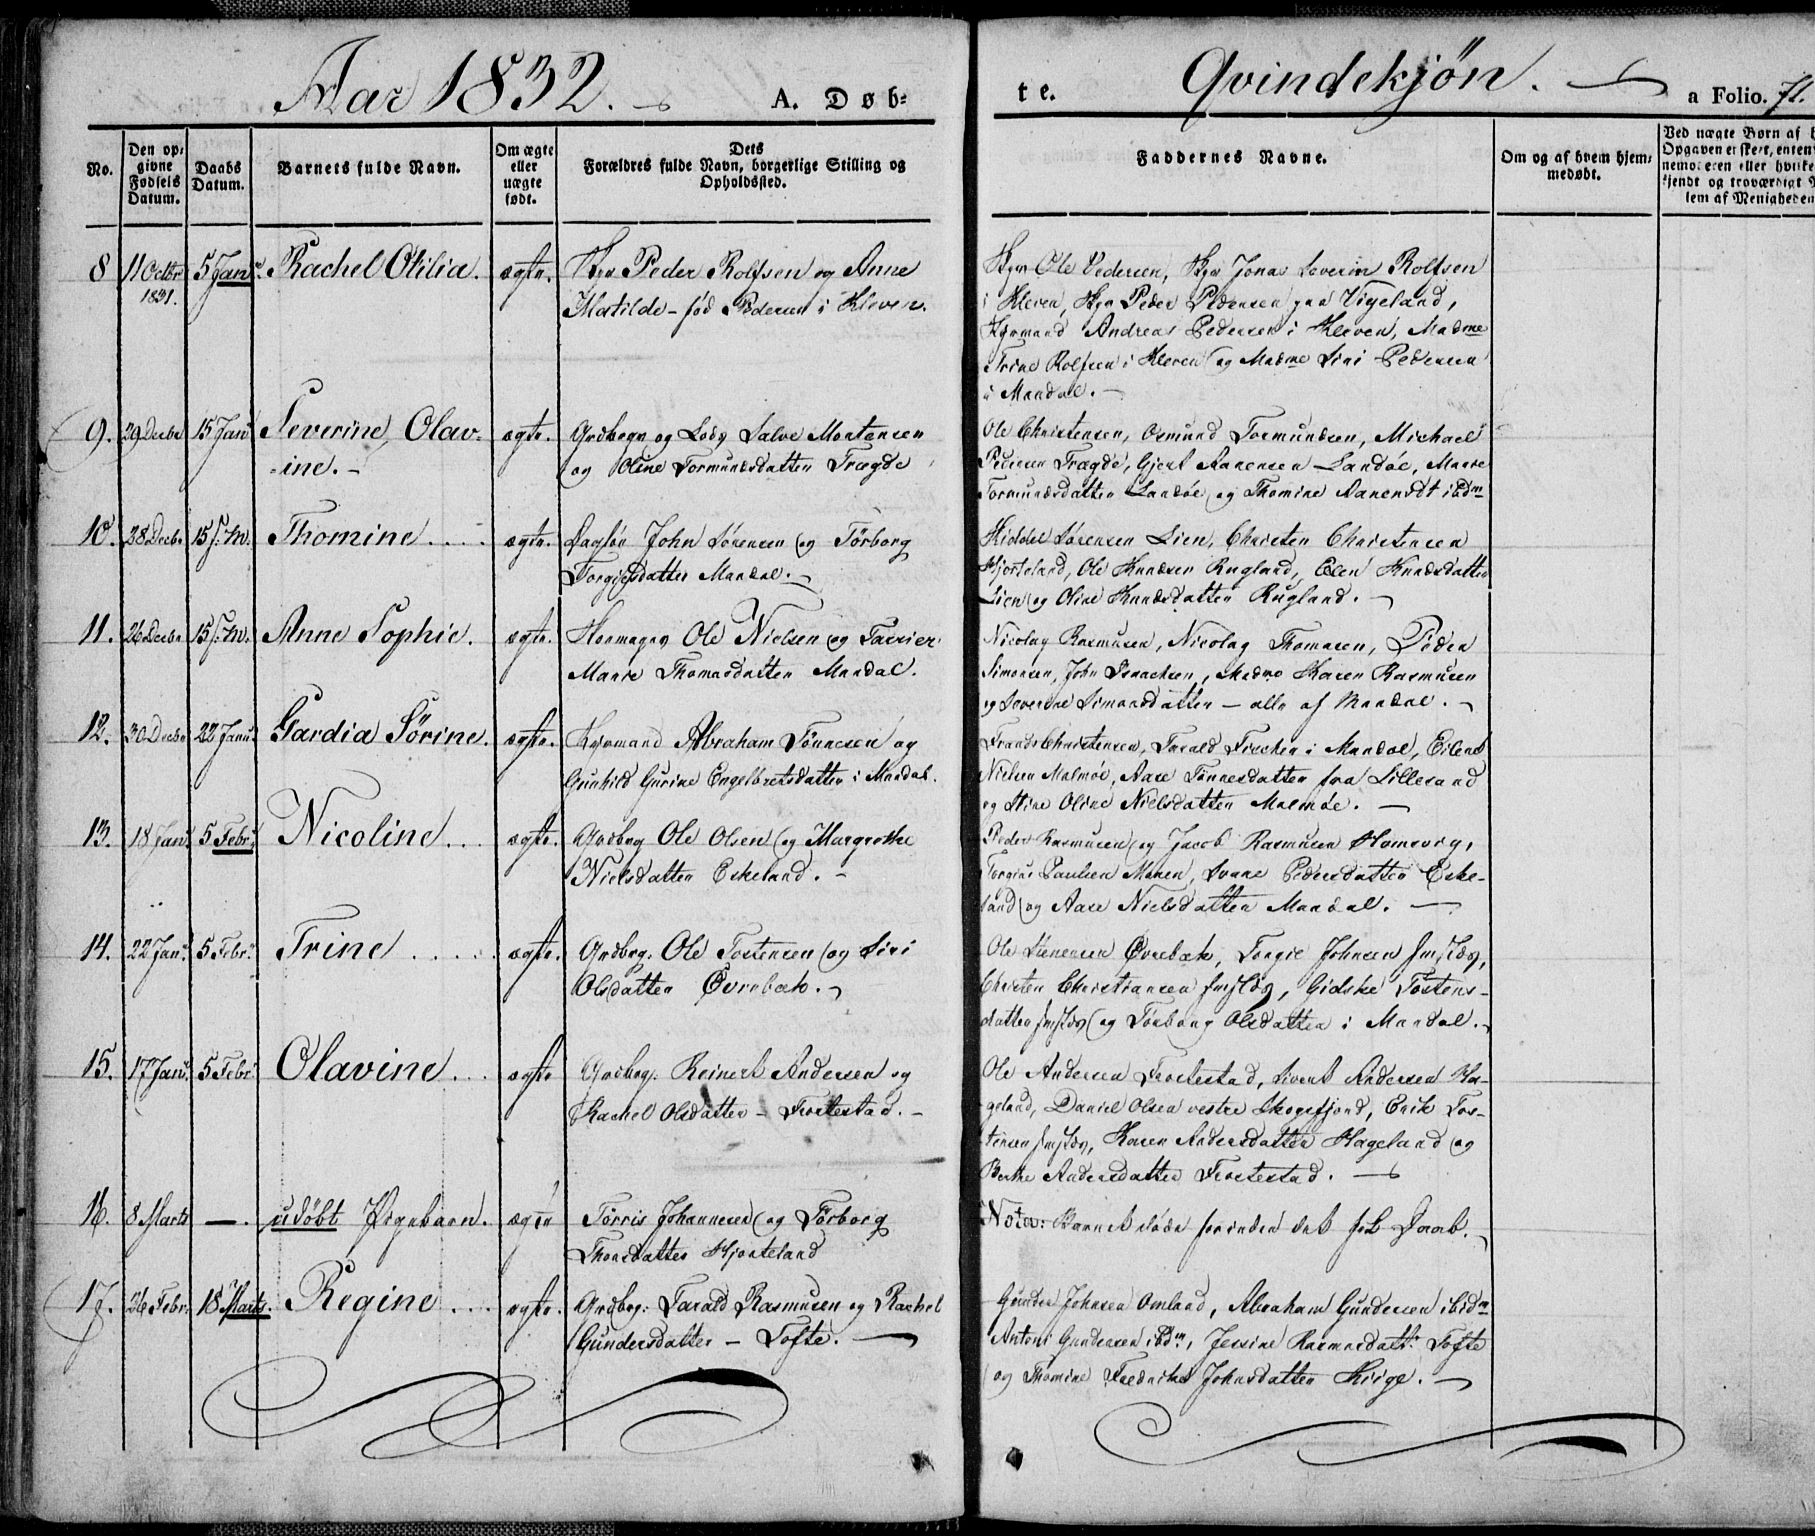 Aar 1832. A. Døb-
te. Qvindekjøn. a Folio. 71.
No.
Den op-
givne
Fødsels
Datum.
Daabs
Datum.
Barnets fulde Navn.
Om ægte
eller
uægte
født.
Dets
Forældres fulde Navn, borgerlige Stilling og
Opholdssted.
Faddernes Navne.
Om og af hvem hjem-
medøbt.
Ved uægte Børn af
Opgaven er skeet, enten
kjendt og troværdigt
lem af Menigheden
8 11 Octbr 5 Janr. Rachel Otilia. ægte. Skpr Peder Rolfsen og Anne
1831.
Matilde - fød Pedersen i Kleven.
Skpr Ole Pedersen, Skpr Jonas Severin Rolfsen
i Kleven, Skpr Peder Pedersen paa Vigeland,
Styrmand Andreas Pedersen i Kleven, Madme
Trine Rolfsen i Kleven og Madme Siri Pedersen
i Mandal.
9. 29 Decbr 15 Janr Severine Olav- ægte. Grdbegr og Lods Salve Mortensen
-ine. - og Oline Tormundsdatter Trægde
Ole Christensen, Osmund Tormundsen, Michael
Pedersen Trægde, Gjert Aanensen Landøe, Maren
Tormundsdatter Landøe og Thomine Aanensdt ibdm
10. 28 Decbr 15 s. M. Thomine ægte. Dagløn John Sørensen og Tørborg
Torgiesdatter Mandal.
Kiddel Sørensen Lien, Christen Christensen
Hjorteland, Ole Knudsen Rugland, Elen Knudsdatter
Lien og Oline Knudsdatter Rugland.
11. 26 Decbr 15 s. M. Anne Sophie. ægte. Ole Nielsen og
Maren Thomasdatter Mandal.
Nicolay Rasmusen, Nicolay Thomasen, Peder
Simonsen, John Isaachsen, Madme Karen Rasmusen
og Severine Simonsdatter - alle af Mandal.
12. 30 Decbr 22 Janr. Gardia Sørine. ægte. Styrmand Abraham Tønnesen og
Gunhild Gurine Engelbretsdatter i Mandal.
Frands Christensen, Tarald Fischer i Mandal, Eilert
Nielsen Malmøe, Aase Tønnesdatter fra Lillesand
og Stine Oline Nielsdatter Malmøe.
13. 18 Janr 5 Febr. Nicoline ægte. Grdbrg Ole Olsen og Margrethe
Nielsdatter Eskeland.
Peder Rasmusen og Jacob Rasmusen Homsvig,
Torgius Paulsen Monen, Svane Pedersdatter Eske-
land og Aase Nielsdatter Mandal.
14. 22 Janr. 5 Febr. Trine ægte. Grdbrg. Ole Tostensen og Siri
Olsdatter Øvrebæk.
Ole Stenersen Øvrebæk, Torgie Johnsen
Christen Christiansen Gidske Tostens-
datter og Tørborg Olsdatter i Mandal.
15. 17 Janr. 5 Febr. Olavine ægte Grdbrg. Reinert Andersen og
Rachel Olsdatter - Frostestad.
Ole Andersen Frostestad, Sivert Andersen Ha-
geland, Daniel Olsen vestre Skogsfjord, Erik Tos-
tensen Karen Andersdatter Hageland og
Berthe Andersdatter Frostestad.
16. 8 Marts -. udøbt Pigebarn. ægte Tørris Johannesen og Tørborg
Thorsdatter Hjorteland
Nota: Barnet døde forinden det fik Daab.
17. 26 Febr. 18 Marts. Regine ægte. Grdbrg: Tarald Rasmusen og Rachel
Gundersdatter - Tofte.
Gunder Johnsen Omland, Abraham Gundersen ibidm
Antoni Gundersen ibdm, Jessine Rasmusdatt: Tofte
og Thomine Fredrike Johnsdatter Kiige.